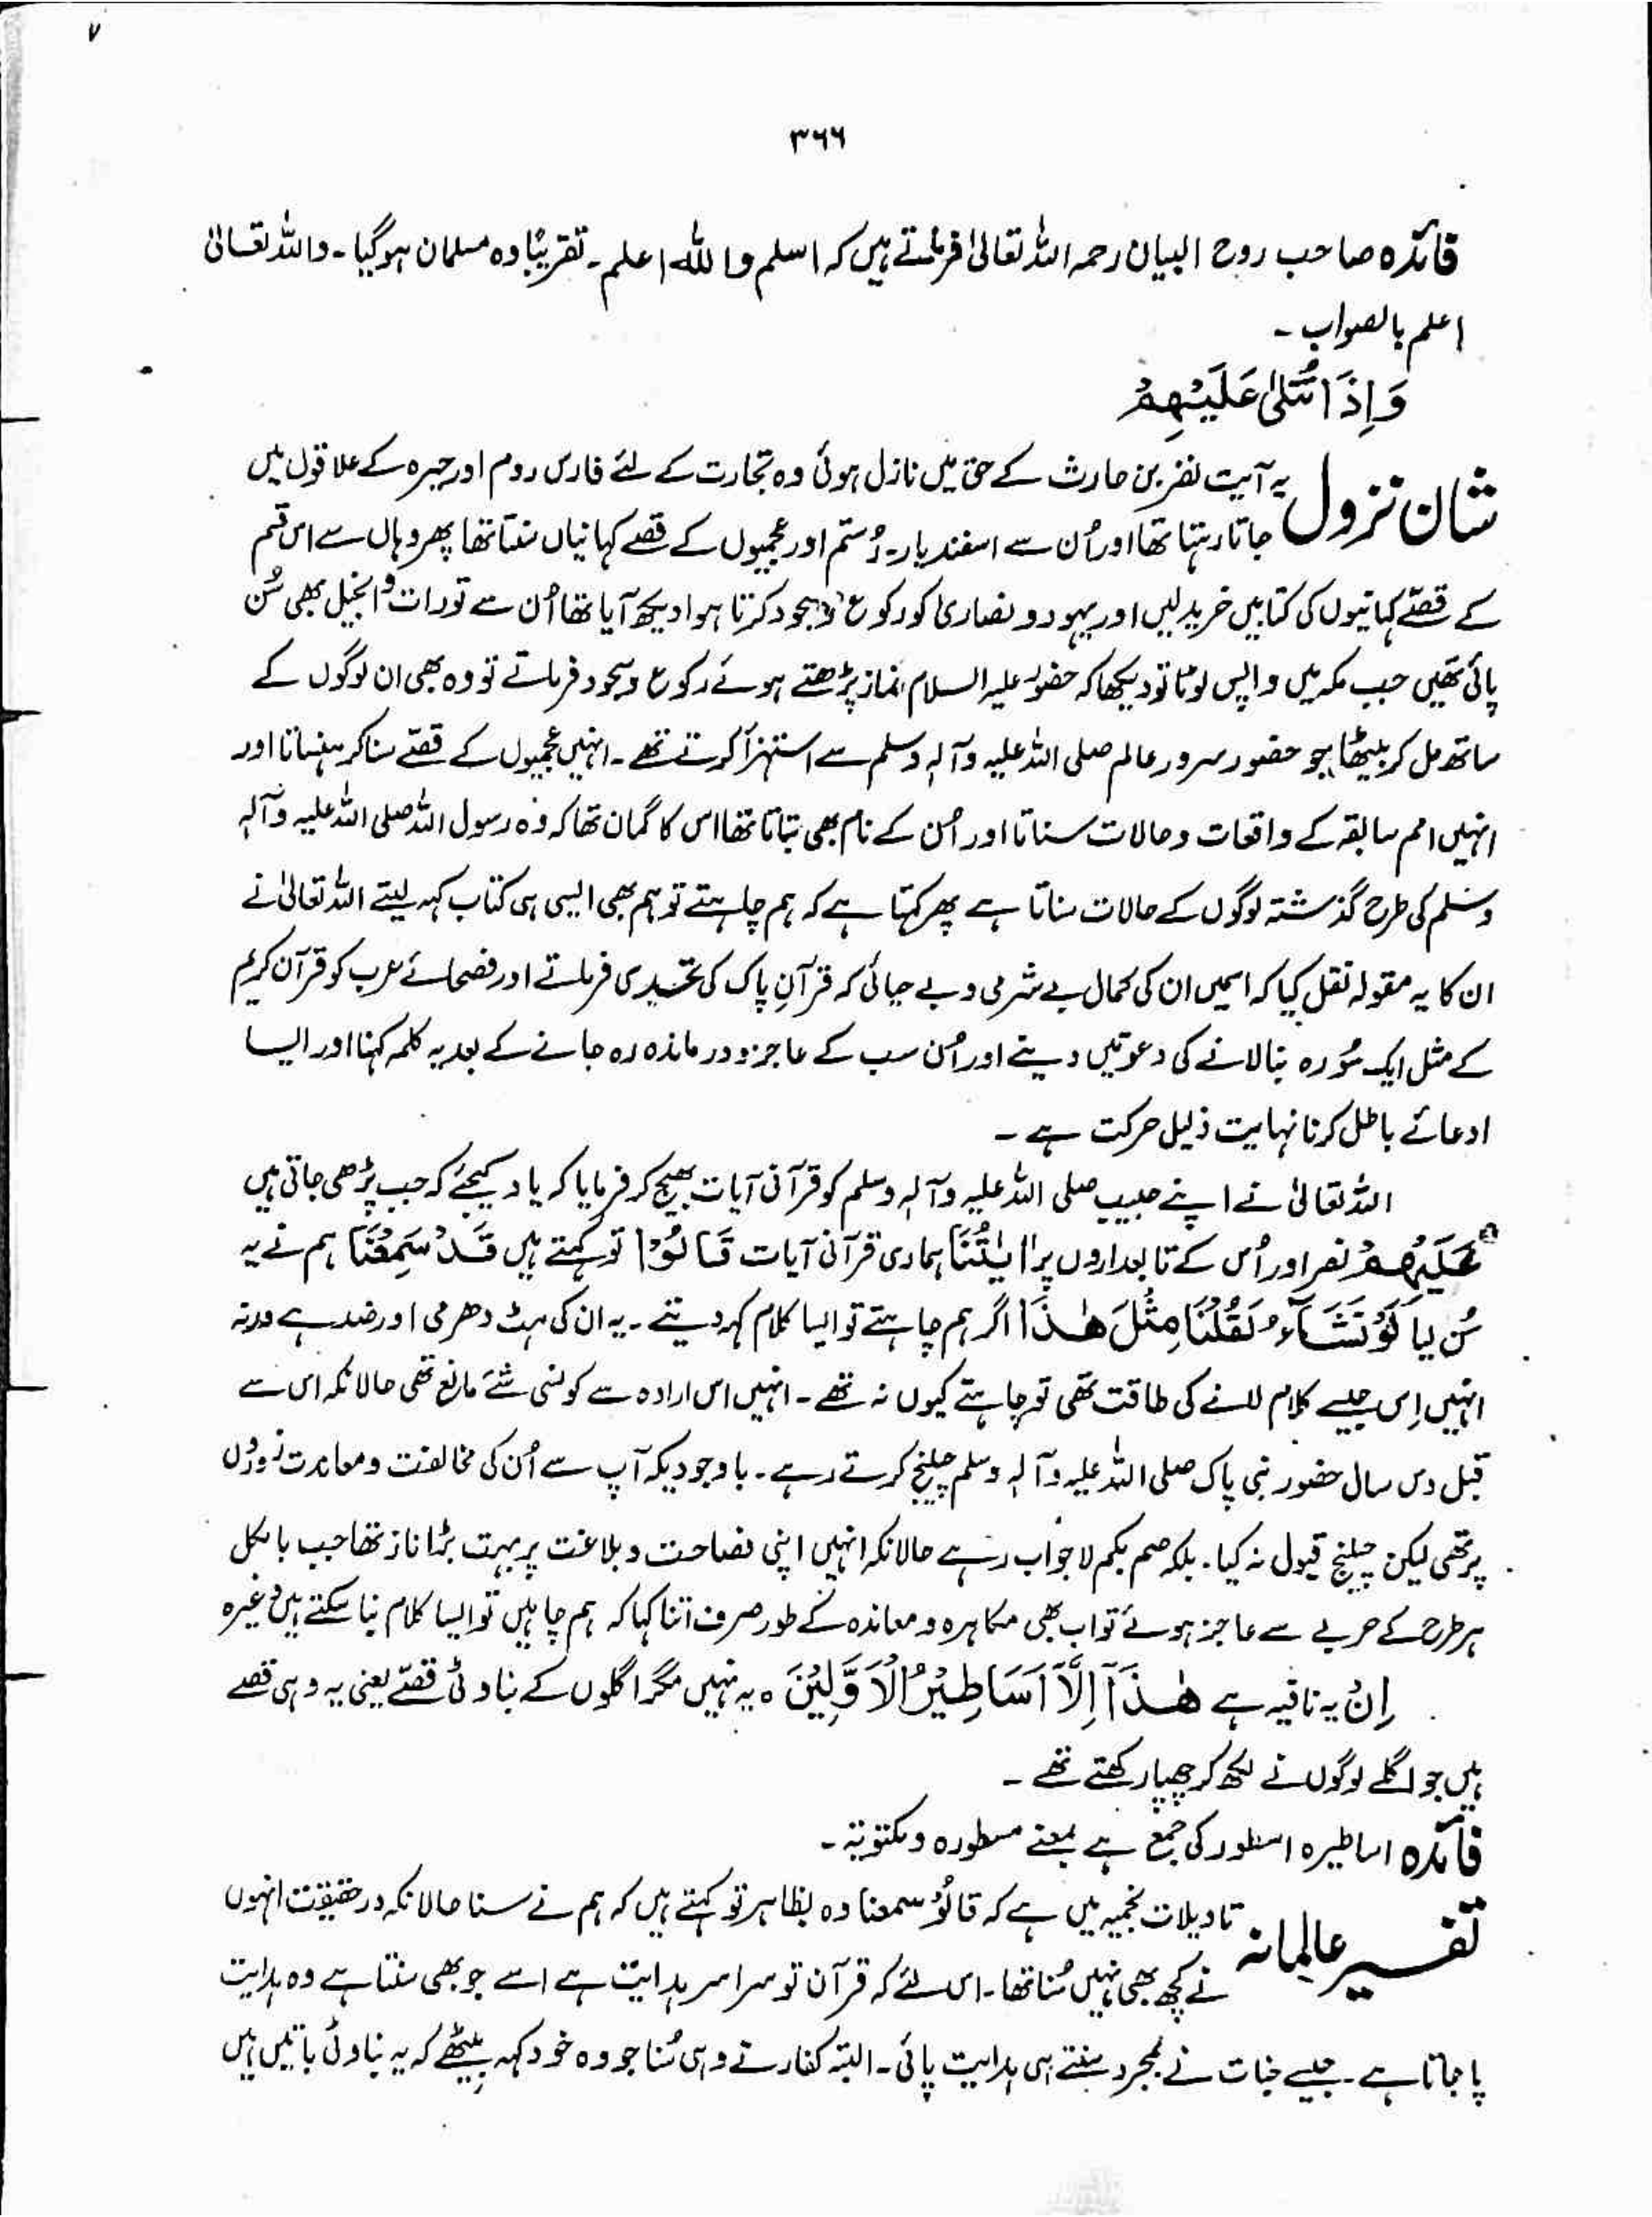 ۷
۳۶۶
فائدہ صاحب روح البیان رحمہ اللہ تعالیٰ فرماتے ہیں کہ اسلم واللہ اعلم۔ تقریبًا وہ مسلمان ہوگیا۔ واللہ تعالیٰ
اعلم بالصواب۔
وَاِذَا تُتْلیٰ عَلَیْہِمْ
شان نزول یہ آیت نضر بن حارث کے حق میں نازل ہوئی وہ تجارت کے لئے فارس روم اور حیرہ کے علاقوں میں
جاتا رہتا تھا اور اُن سے اسفندیار۔ رُستم اور عجمیوں کے قصے کہانیاں سنتا تھا پھر وہاں سے اس قسم
کے قصّے کہانیوں کی کتابیں خرید لیں اور یہود و نصاریٰ کو رکوع و سجود کرتا ہوا دیکھ آیا تھا اُن سے تورات و انجیل بھی سُن
پائی تھیں جب مکہ میں واپس لوٹا تو دیکھا کہ حضور علیہ السلام نماز پڑھتے ہوئے رکوع و سجود فرماتے تو وہ بھی ان لوگوں کے
ساتھ مل کر بیٹھا جو حضور سرور عالم صلی اللہ علیہ وآلہٖ وسلم سے استہزأ کرتے تھے۔ انہیں عجمیوں کے قصّے سنا کر ہنساتا اور
انہیں امم سابقہ کے واقعات و حالات سناتا اور اُن کے نام بھی بتاتا تھا اس کا گمان تھا کہ وہ رسول اللہ صلی اللہ علیہ وآلہٖ
وسلم کی طرح گذشتہ لوگوں کے حالات سناتا ہے پھر کہتا ہے کہ ہم چاہتے تو ہم بھی ایسی ہی کتاب کہہ لیتے اللہ تعالیٰ نے
ان کا یہ مقولہ نقل کیا کہ اسمیں ان کی کمال بے شرمی و بے حیائی کہ قرآنِ پاک کی تحدی فرماتے اور فصحائے عرب کو قرآن کریم
کے مثل ایک سُورہ بنا لانے کی دعوتیں دینے اور اُن سب کے عاجز و درماندہ رہ جانے کے بعد یہ کلمہ کہنا اور ایسا
ادعائے باطل کرنا نہایت ذلیل حرکت ہے۔
اللہ تعالیٰ نے اپنے حبیب صلی اللہ علیہ وآلہٖ وسلم کو قرآنی آیات بھیج کر فرمایا کہ یاد کیجئے کہ جب پڑھی جاتی ہیں
عَلَیْہِمْ نضر اور اُس کے تابعداروں پر اٰیٰتُنَا ہماری قرآنی آیات قَالُوْا تو کہتے ہیں قَدْ سَمِعْنَا ہم نے یہ
سُن لیا لَوْ نَشَآءُ لَقُلْنَا مِثْلَ ھٰذَا اگر ہم چاہتے تو ایسا کلام کہہ دیتے۔ یہ ان کی ہٹ دھرمی اور ضد ہے ورنہ
انہیں اِس جیسے کلام لانے کی طاقت تھی تو چاہتے کیوں نہ تھے۔ انہیں اس ارادہ سے کونسی شئے مانع تھی حالانکہ اس سے
قبل دس سال حضور نبی پاک صلی اللہ علیہ وآلہٖ وسلم چیلنج کرتے رہے۔ باوجودیکہ آپ سے اُن کی مخالفت و معاندت زوروں
پر تھی لیکن چیلنج قبول نہ کیا۔ بلکہ صم بکم لاجواب رہے حالانکہ انہیں اپنی فصاحت و بلاغت پر بہت بڑا ناز تھا جب بالکل
ہر طرح کے حربے سے عاجز ہوئے تو اب بھی مکابرہ و معاندہ کے طور صرف اتنا کہا کہ ہم چاہیں تو ایسا کلام بنا سکتے ہیں وغیرہ
اِنْ یہ نافیہ ہے ھٰذَآ اِلَّآ اَسَاطِیْرُ الْاَوَّلِیْنَ ہ یہ نہیں مگر اگلوں کے بناوٹی قصّے یعنی یہ وہی قصے
ہیں جو اگلے لوگوں نے لکھ کر چھپا رکھتے تھے۔
فائدہ اساطیرہ اسطور کی جمع ہے بمعنے مسطورہ و مکتوبتہ۔
تفسیر عالمانہ تاویلات نجمیہ میں ہے کہ قالُوْ سمعنا وہ بظاہر تو کہتے ہیں کہ ہم نے سنا حالانکہ در حقیقت انہوں
نے کچھ بھی نہیں سُنا تھا۔ اس لئے کہ قرآن تو سراسر ہدایت ہے اسے جو بھی سنتا ہے وہ ہدایت
پا جاتا ہے۔ جیسے جنات نے بمجرد سنتے ہی ہدایت پائی۔ البتہ کفار نے وہی سُنا جو وہ خود کہہ بیٹھے کہ یہ بناوٹی باتیں ہیں